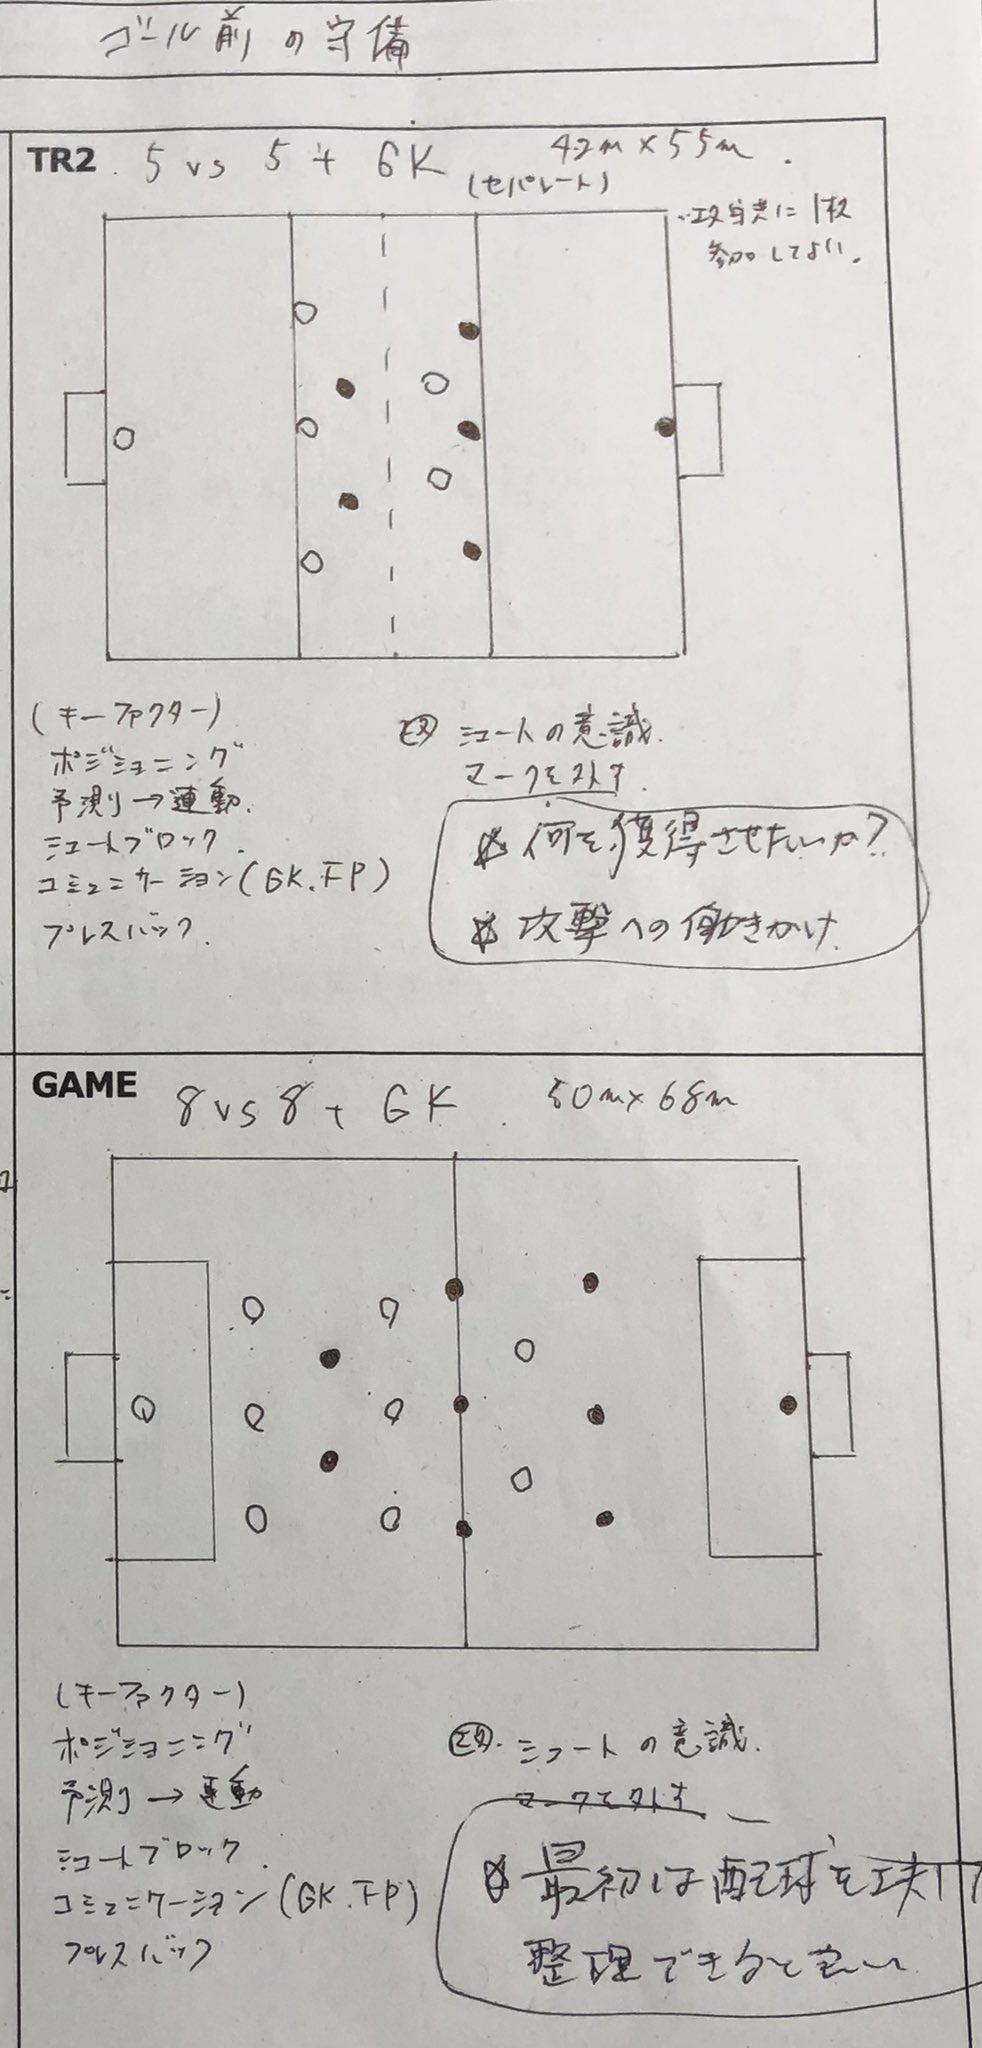 ゴール前の守備
TR2 5 vs 5 + GK 42m×55m
(セパレート)
攻守共に1枚
参加してよい。
(キーファクター)
ポジショニング
予測→連動.
シュートブロック.
コミュニケーション(GK.FP)
プレスバック.
攻 シュートの意識.
マークを外す.
※何を獲得させたいか?
※攻撃への働きかけ
GAME 8 vs 8 + GK 50m×68m
(キーファクター)
ポジショニング
予測→連動
シュートブロック.
コミュニケーション(GK.FP)
プレスバック
攻. シュートの意識.
マークを外す
※最初は配球を工夫して
整理できると良い